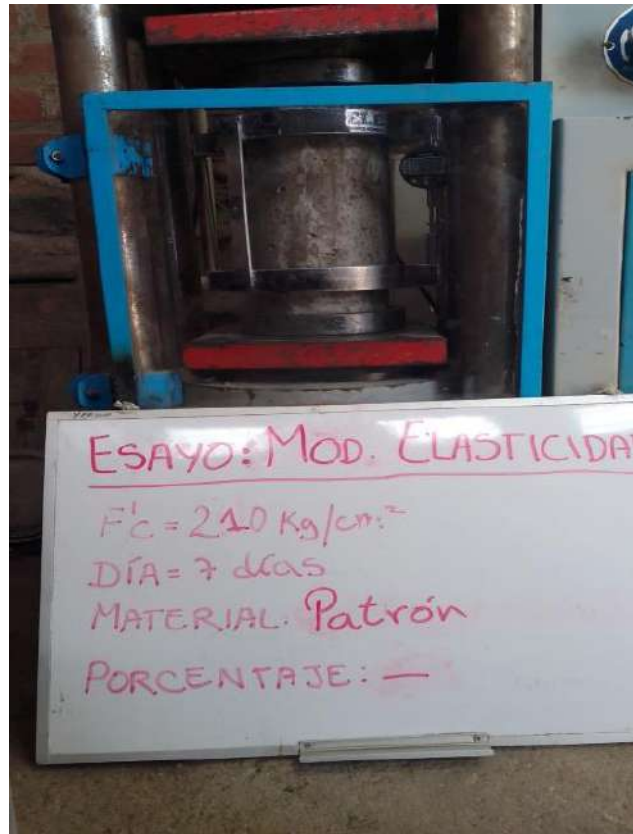 ESAYO: MOD. ELASTICIDA
F'c = 210 Kg/cm²
DÍA = 7 días
MATERIAL. Patrón
PORCENTAJE: —